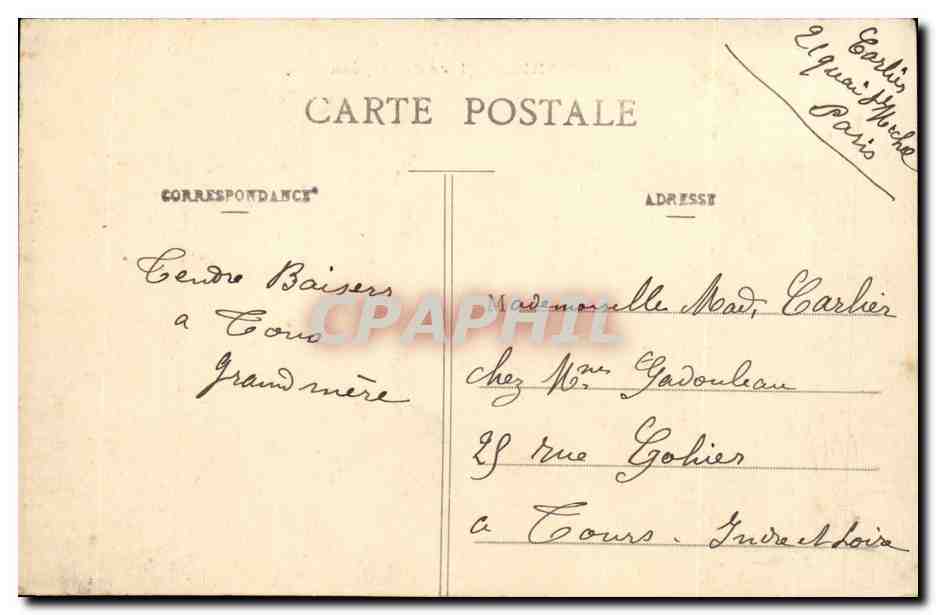 Carlier
21 quai St Michel
Paris
CARTE POSTALE
CORRESPONDANCE
ADRESSE
Tendre Baisers
a Tous
grand mère
Mademoiselle Mad, Carlier
chez Mme Gadouleau
25 rue Gohier
a Tours. Indre et Loire
CPAPHIL